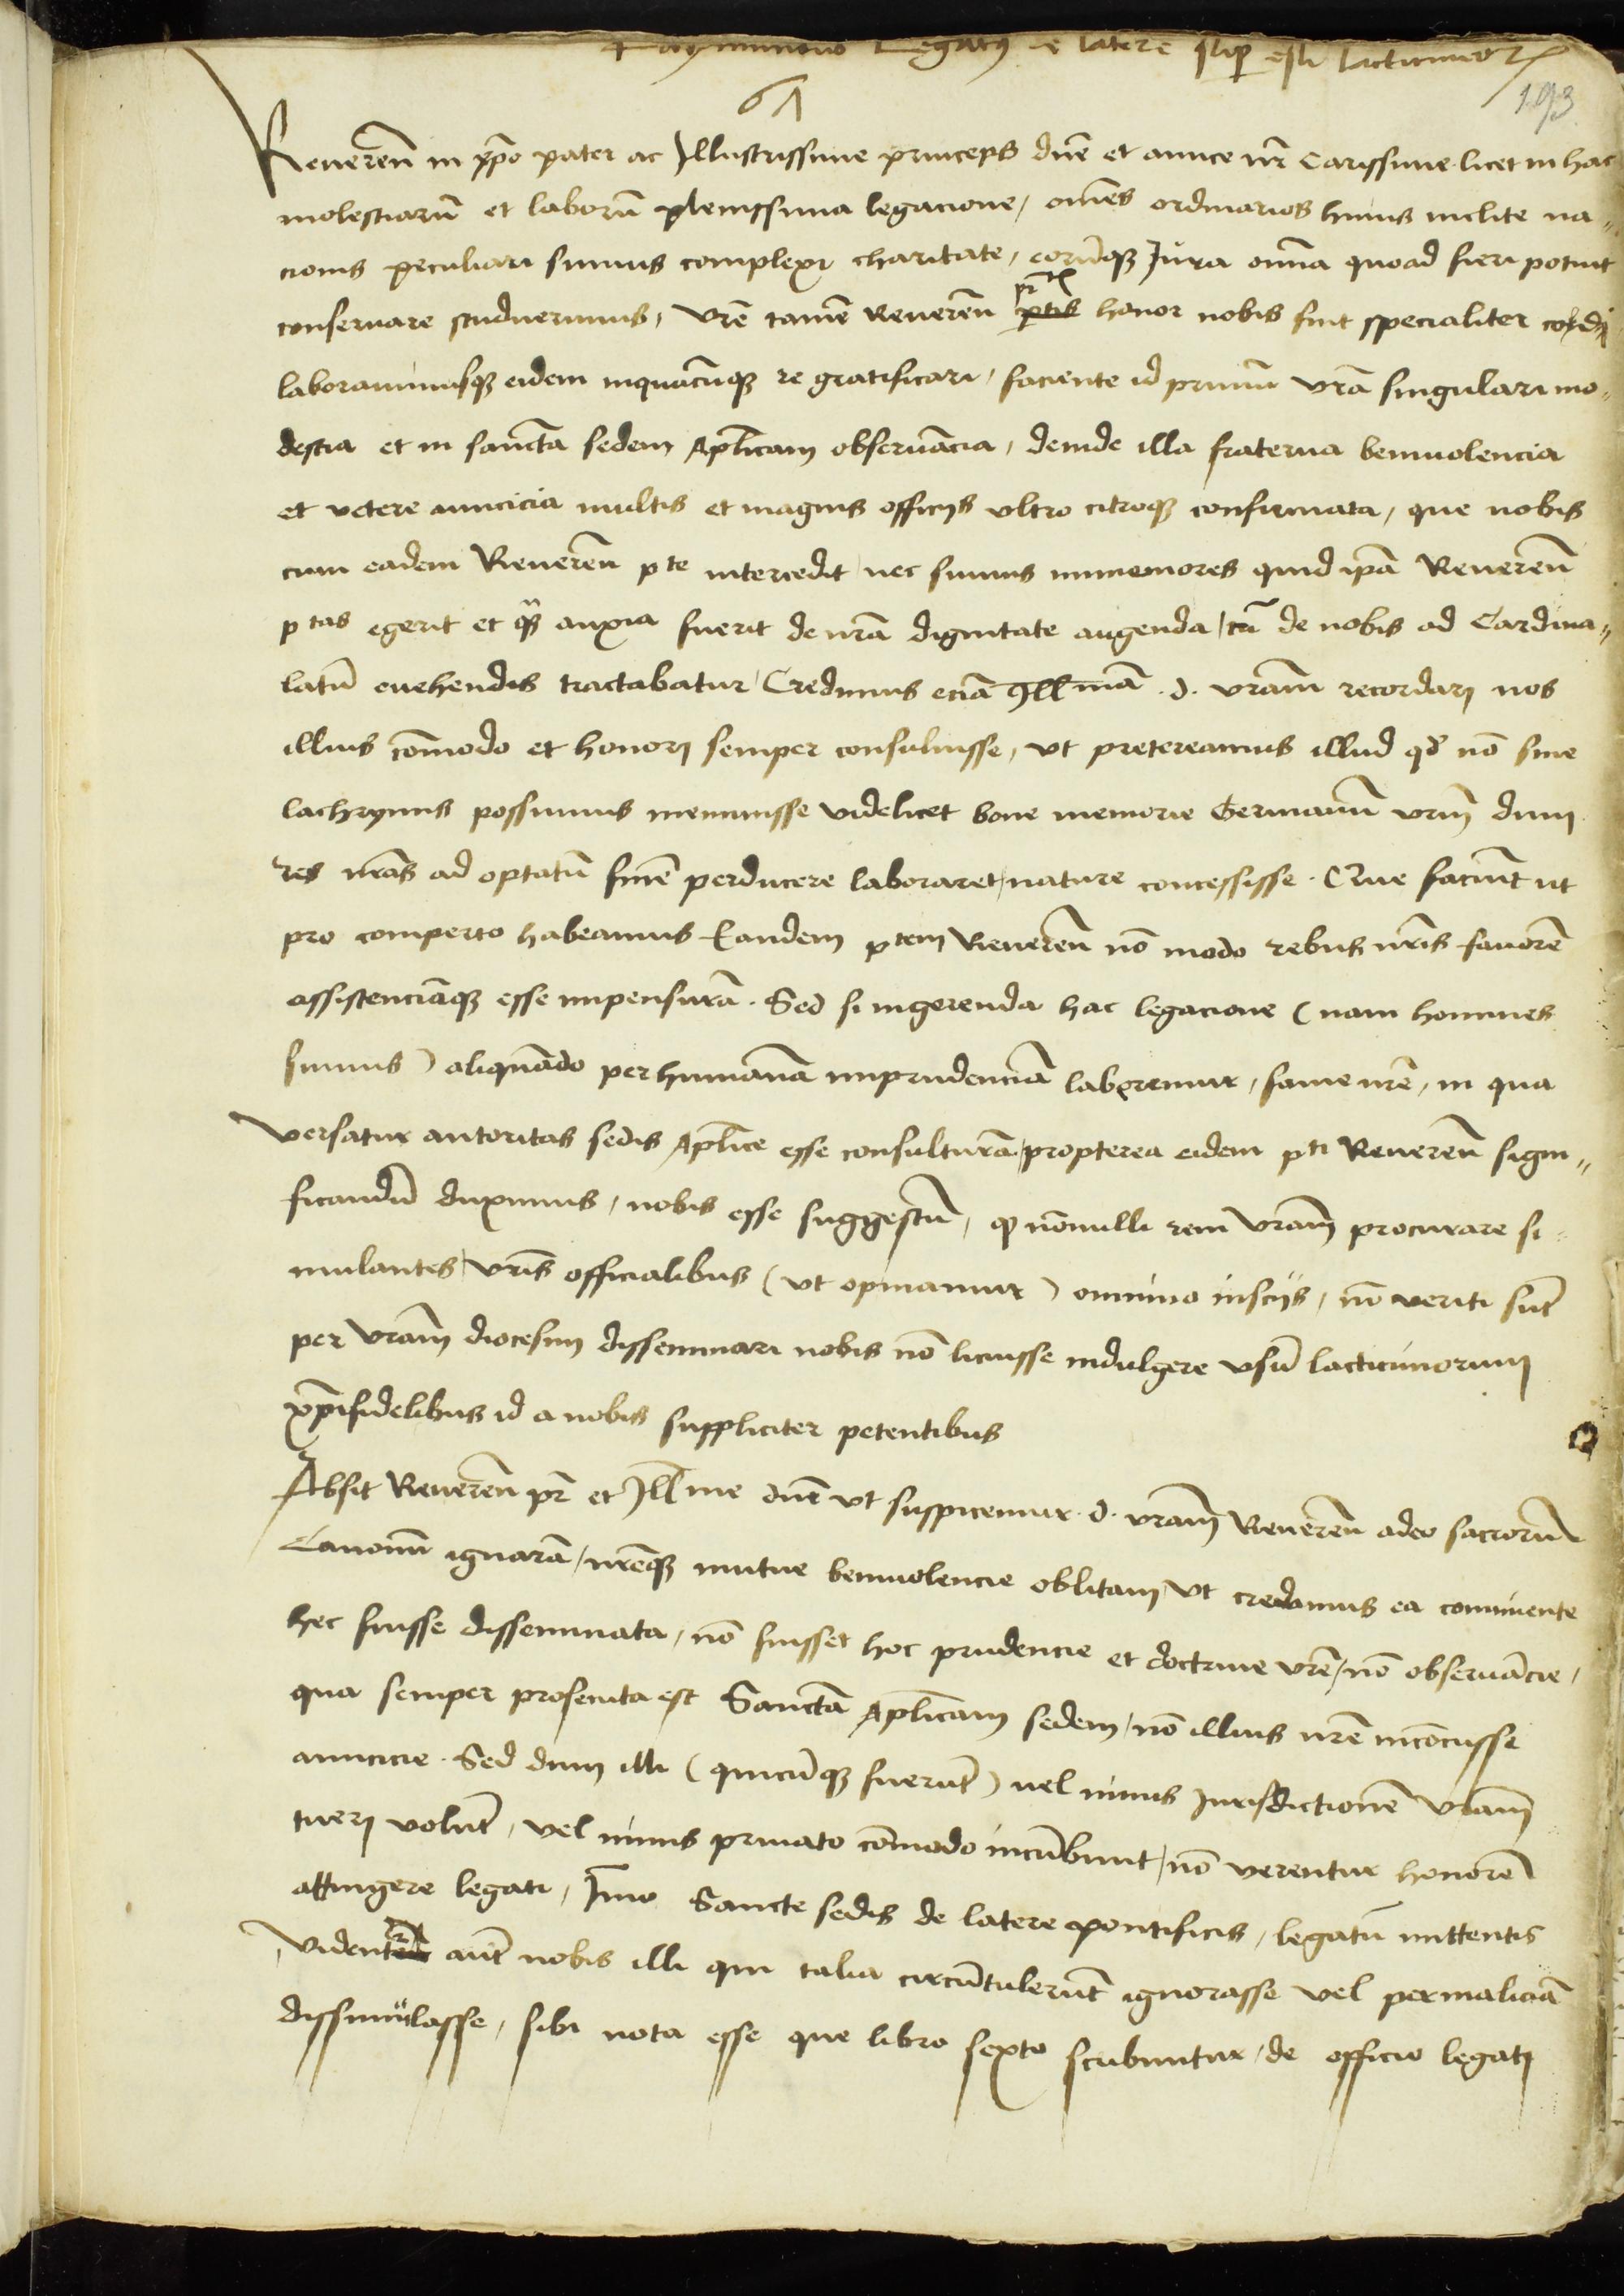 Raymundus Legatus de latere super esu lacticinior
61
193
Reueren in xpo pater ac Illustrissime princeps dne et amice nr Carissime. licet in hac
molestiarū et laborū plenissima legacione, omēs ordinarios huius inclite na„
cionis peculiari simus complexi charitate, eorūqȝ Jura omnia quoad fieri potuit
conseruare studuerimus, Vrē tamē Reueren ptis honor nobis fuit specialiter cordi
laborauimusqȝ eidem inquacūqȝ re gratificari, faciente id primū vrā singulari mo„
destia et in sanctā sedem Aplicam obseruācia, deinde illa fraterna beniuolencia
et vetere amicicia multis et magnis officijs vltro citroqȝ confirmata, que nobis
cum eadem Reueren pte intercedit nec sumus immemores quid ipā Reueren
ptas egerit et qȝ anxia fuerit de nrā dignitate augenda, cū de nobis ad Cardina„
latū euehendis tractabatur, Credimus eciā Illmā .d. vram recordari nos
illius cōmodo et honori semper consuluisse, vt pretereamus illud qd nō sine
lachrymis possumus meminisse videlicet bone memorie Germanū vrm dum
res nras ad optatū finē perducere laboraret, nature concessisse. Que faciūt ut
pro comperto habeamus Eandem ptem Reueren nō modo rebus nris fauorē
assistenciāqȝ esse impensurā. Sed si ingerenda hac legacione (nam homines
sumus) aliquādo per humanā imprudenciā laboremur, fame nrē, in qua
versatur autoritas sedis Aplice esse consulturā, propterea eidem pti Reueren signi„
ficandū duximus, nobis esse suggestū, qȝ nōnulli rem vram procurare si„
mulantes, vris officialibus (vt opinamur) omnino inscijs, nō veriti sūt
per vram diocesim disseminari nobis nō licuisse indulgere vsū lacticiniorum
xpifidelibus id a nobis suppliciter petentibus
Absit Reueren pr et Illme dne vt suspicemur .d. vram Reueren adeo sacrorū
Canonū ignarā, nrēqȝ mutue beniuolencie oblitam, vt credamus ea conniuente
hec fuisse disseminata, nō fuisset hoc prudencie et doctrine vrē, nō obseruācie,
qua semper prosecuta est Sanctā Aplicam sedem, nō illius nrē incōcusse
amicicie. Sed dum illi (quicūqȝ fuerūt) vel nimis Jurisdictionē vram
tueri volūt, vel nimis priuato cōmodo incūbunt, nō verentur honorē
attingere legati, Jmo Sancte sedis de latere pontificis, legatū mittentis
Videntur aūt nobis illi qui talia circūtulerūt ignorasse vel per maliciā
dissimulasse, sibi nota esse que libro sexto scribuntur, de officio legati